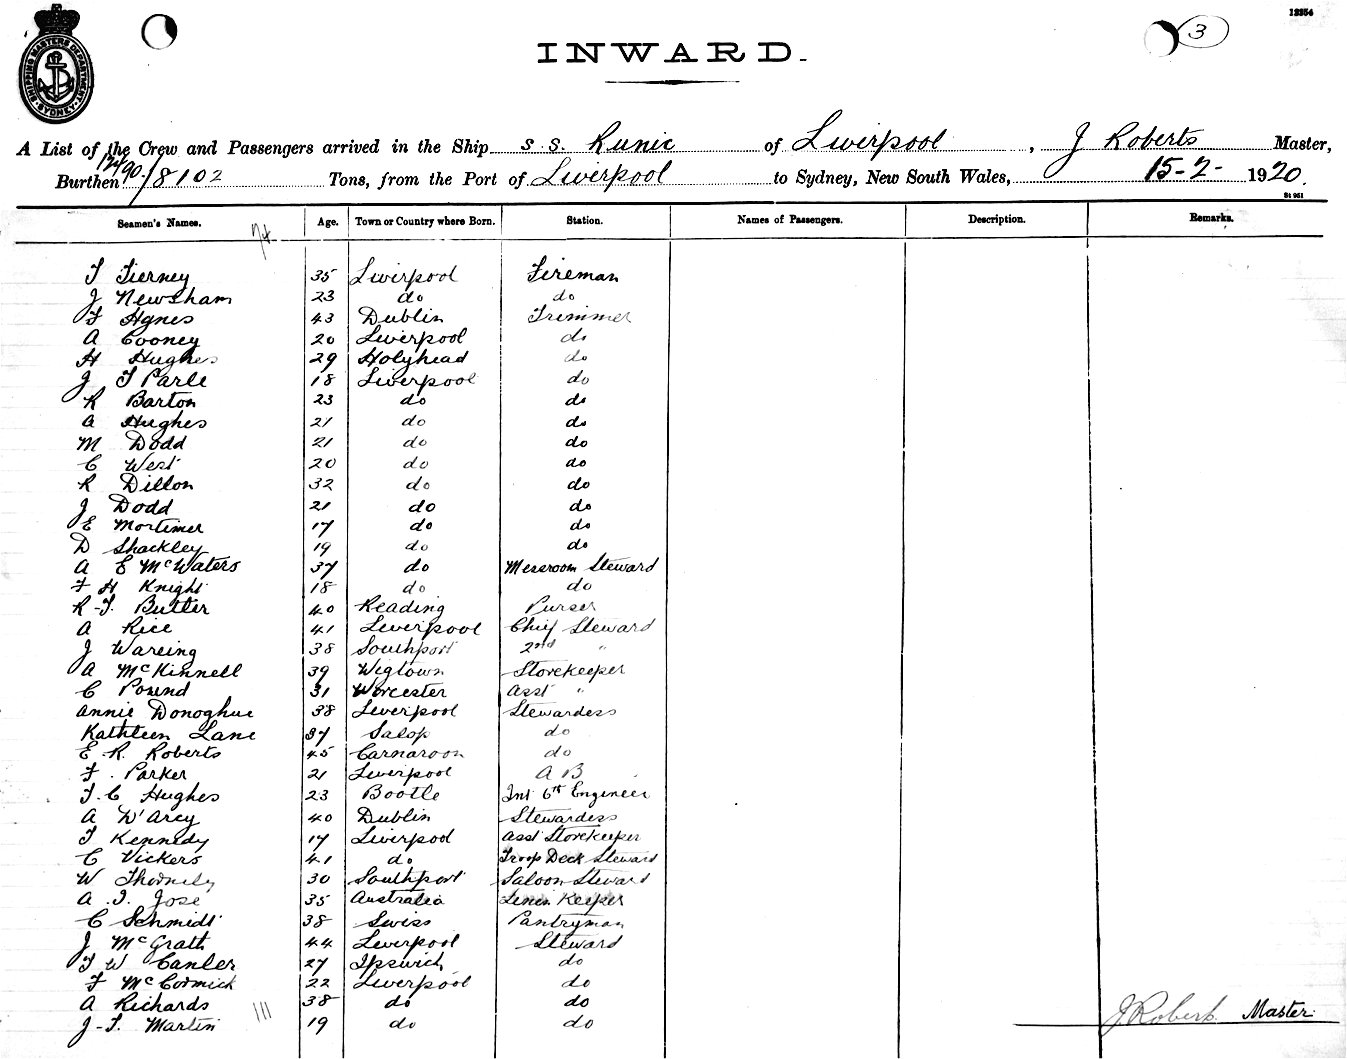 12354
3
SHIPPING MASTERS DEPARTMENT SYDNEY
INWARD.
A List of the Crew and Passengers arrived in the Ship S.S. Runic of Liverpool, J Roberts Master,
Burthen 12490/8102 Tons, from the Port of Liverpool to Sydney, New South Wales, 15-2-1920.
St 951
Seamen's Names. Age. Town or Country where Born. Station. Names of Passengers. Description. Remarks.
T Tierney 35 Liverpool Fireman
J Newsham 23 do do
F Agnes 43 Dublin Trimmer
A Cooney 20 Liverpool do
H Hughes 29 Holyhead do
J T Parle 18 Liverpool do
R Barton 23 do do
A Hughes 21 do do
M Dodd 21 do do
C West 20 do do
R Dillon 32 do do
J Dodd 21 do do
E Mortimer 17 do do
D Shackley 19 do do
A E McWaters 37 do Messroom Steward
F H Knight 18 do do
R-T. Butler 40 Reading Purser
A Rice 41 Liverpool Chief Steward
J Wareing 38 Southport 2nd "
A McKinnell 39 Wigtown Storekeeper
C Pound 31 Worcester Asst "
Annie Donoghue 38 Liverpool Stewardess
Kathleen Lane 37 Salop do
E. R. Roberts 45 Carnaroon do
F. Parker 21 Liverpool A B
T. C Hughes 23 Bootle Int 6th Engineer
A D'Arcy 40 Dublin Stewardess
T Kennedy 17 Liverpool Asst Storekeeper
C Vickers 41 do Troop Deck Steward
W Thornely 30 Southport Saloon Steward
A. I. Jose 35 Australia Linen Keeper
C Schmidt 38 Swiss Pantryman
J McGrath 44 Liverpool Steward
T W Canler 27 Ipswich do
F McCormick 22 Liverpool do
A Richards 38 do do
J-T. Martin 19 do do
J Roberts Master